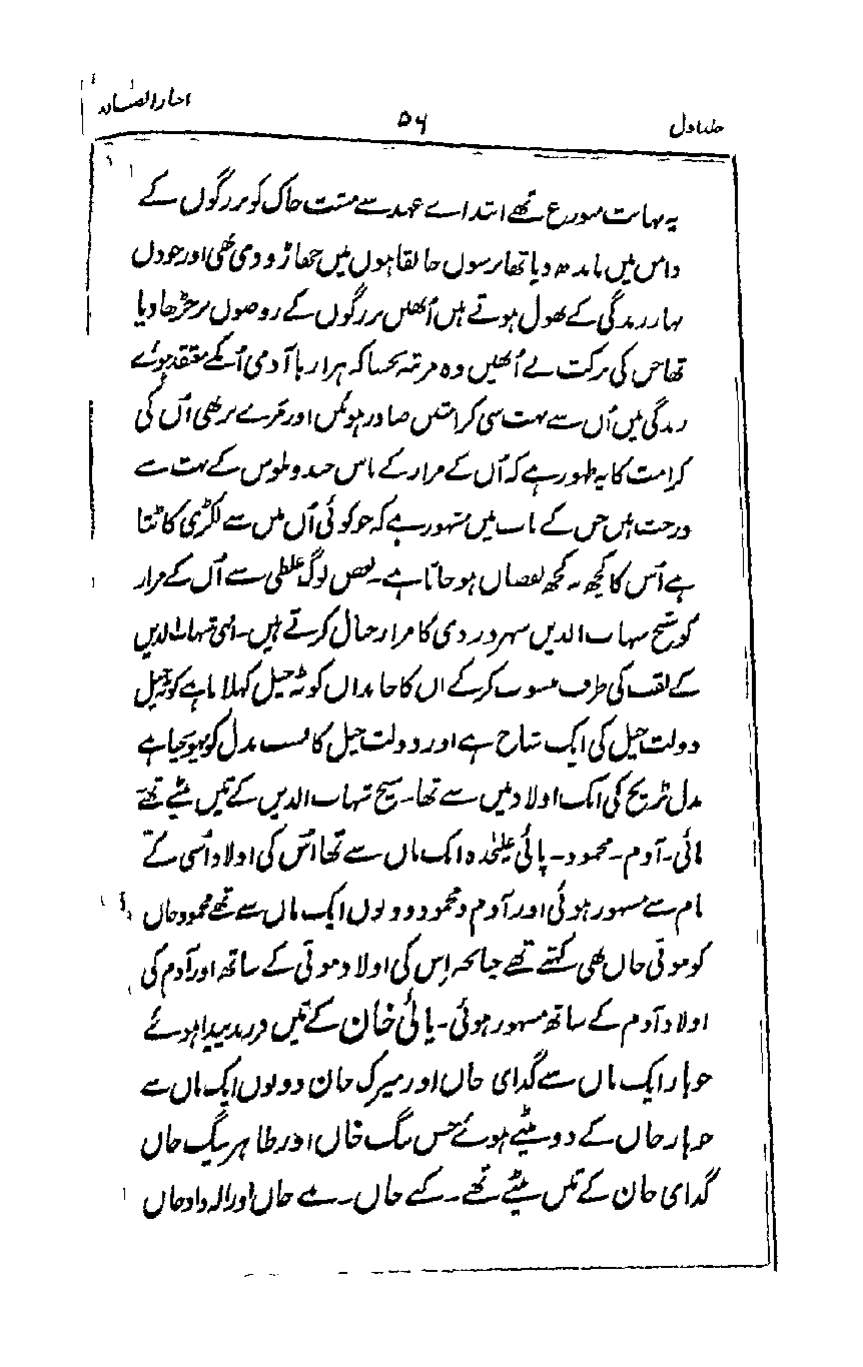 جلد اول ۵۶ اخبار الصنادید
یہ نہایت متورع تھے ابتداے عہد سے مشت خاک کو بزرگوں کے
دامن میں باندھ دیا تھا برسوں خانقاہوں میں جھاڑو دی تھی اور جو دل
بہار زندگی کے پھول ہوتے ہیں اُنھیں بزرگوں کے روضوں پر چڑھا دیا
تھا جن کی برکت نے اُنھیں وہ مرتبہ بخشا کہ ہزارہا آدمی اُنکے معتقد ہوئے
زندگی میں اُن سے بہت سی کرامتیں صادر ہوئیں اور مرے پر بھی اُن کی
کرامت کا یہ ظہور ہے کہ اُن کے مزار کے پاس جند و بلوس کے بہت سے
درخت ہیں جن کے باب میں مشہور ہے کہ جو کوئی اُن میں سے لکڑی کاٹتا
ہے اُس کا کچھ نہ کچھ نقصان ہو جاتا ہے۔ بعض لوگ غلطی سے اُن کے مزار
کو شیخ شہاب الدین سہروردی کا مزار خیال کرتے ہیں۔ انہی شہاب الدین
کے لقب کی طرف منسوب کرکے ان کا خاندان کوٹہ خیل کہلاتا ہے کوٹہ خیل
دولت خیل کی ایک شاخ ہے اور دولت خیل کا نسب بدل کو پہونچتا ہے
بدل بڑیچ کی ایک اولاد میں سے تھا۔ شیخ شہاب الدین کے تین بیٹے تھے
پائی۔ آدم۔ محمود۔ پائی علیٰحدہ ایک ماں سے تھا اُس کی اولاد اُسی کے
نام سے مشہور ہوئی اور آدم و محمود دونوں ایک ماں سے تھے محمود خاں
کو موتی خاں بھی کہتے تھے چنانچہ اِس کی اولاد موتی کے ساتھ اور آدم کی
اولاد آدم کے ساتھ مشہور ہوئی۔ پائی خان کے تین فرزند پیدا ہوئے
ایک ماں سے گدای خاں اور میرک خان دونوں ایک ماں سے
خاں کے دو بیٹے ہوئے حسن بیگ خاں اور طاہر بیگ خاں
گدای خان کے تین بیٹے تھے۔ خاں۔ خاں اور الہ داد خاں